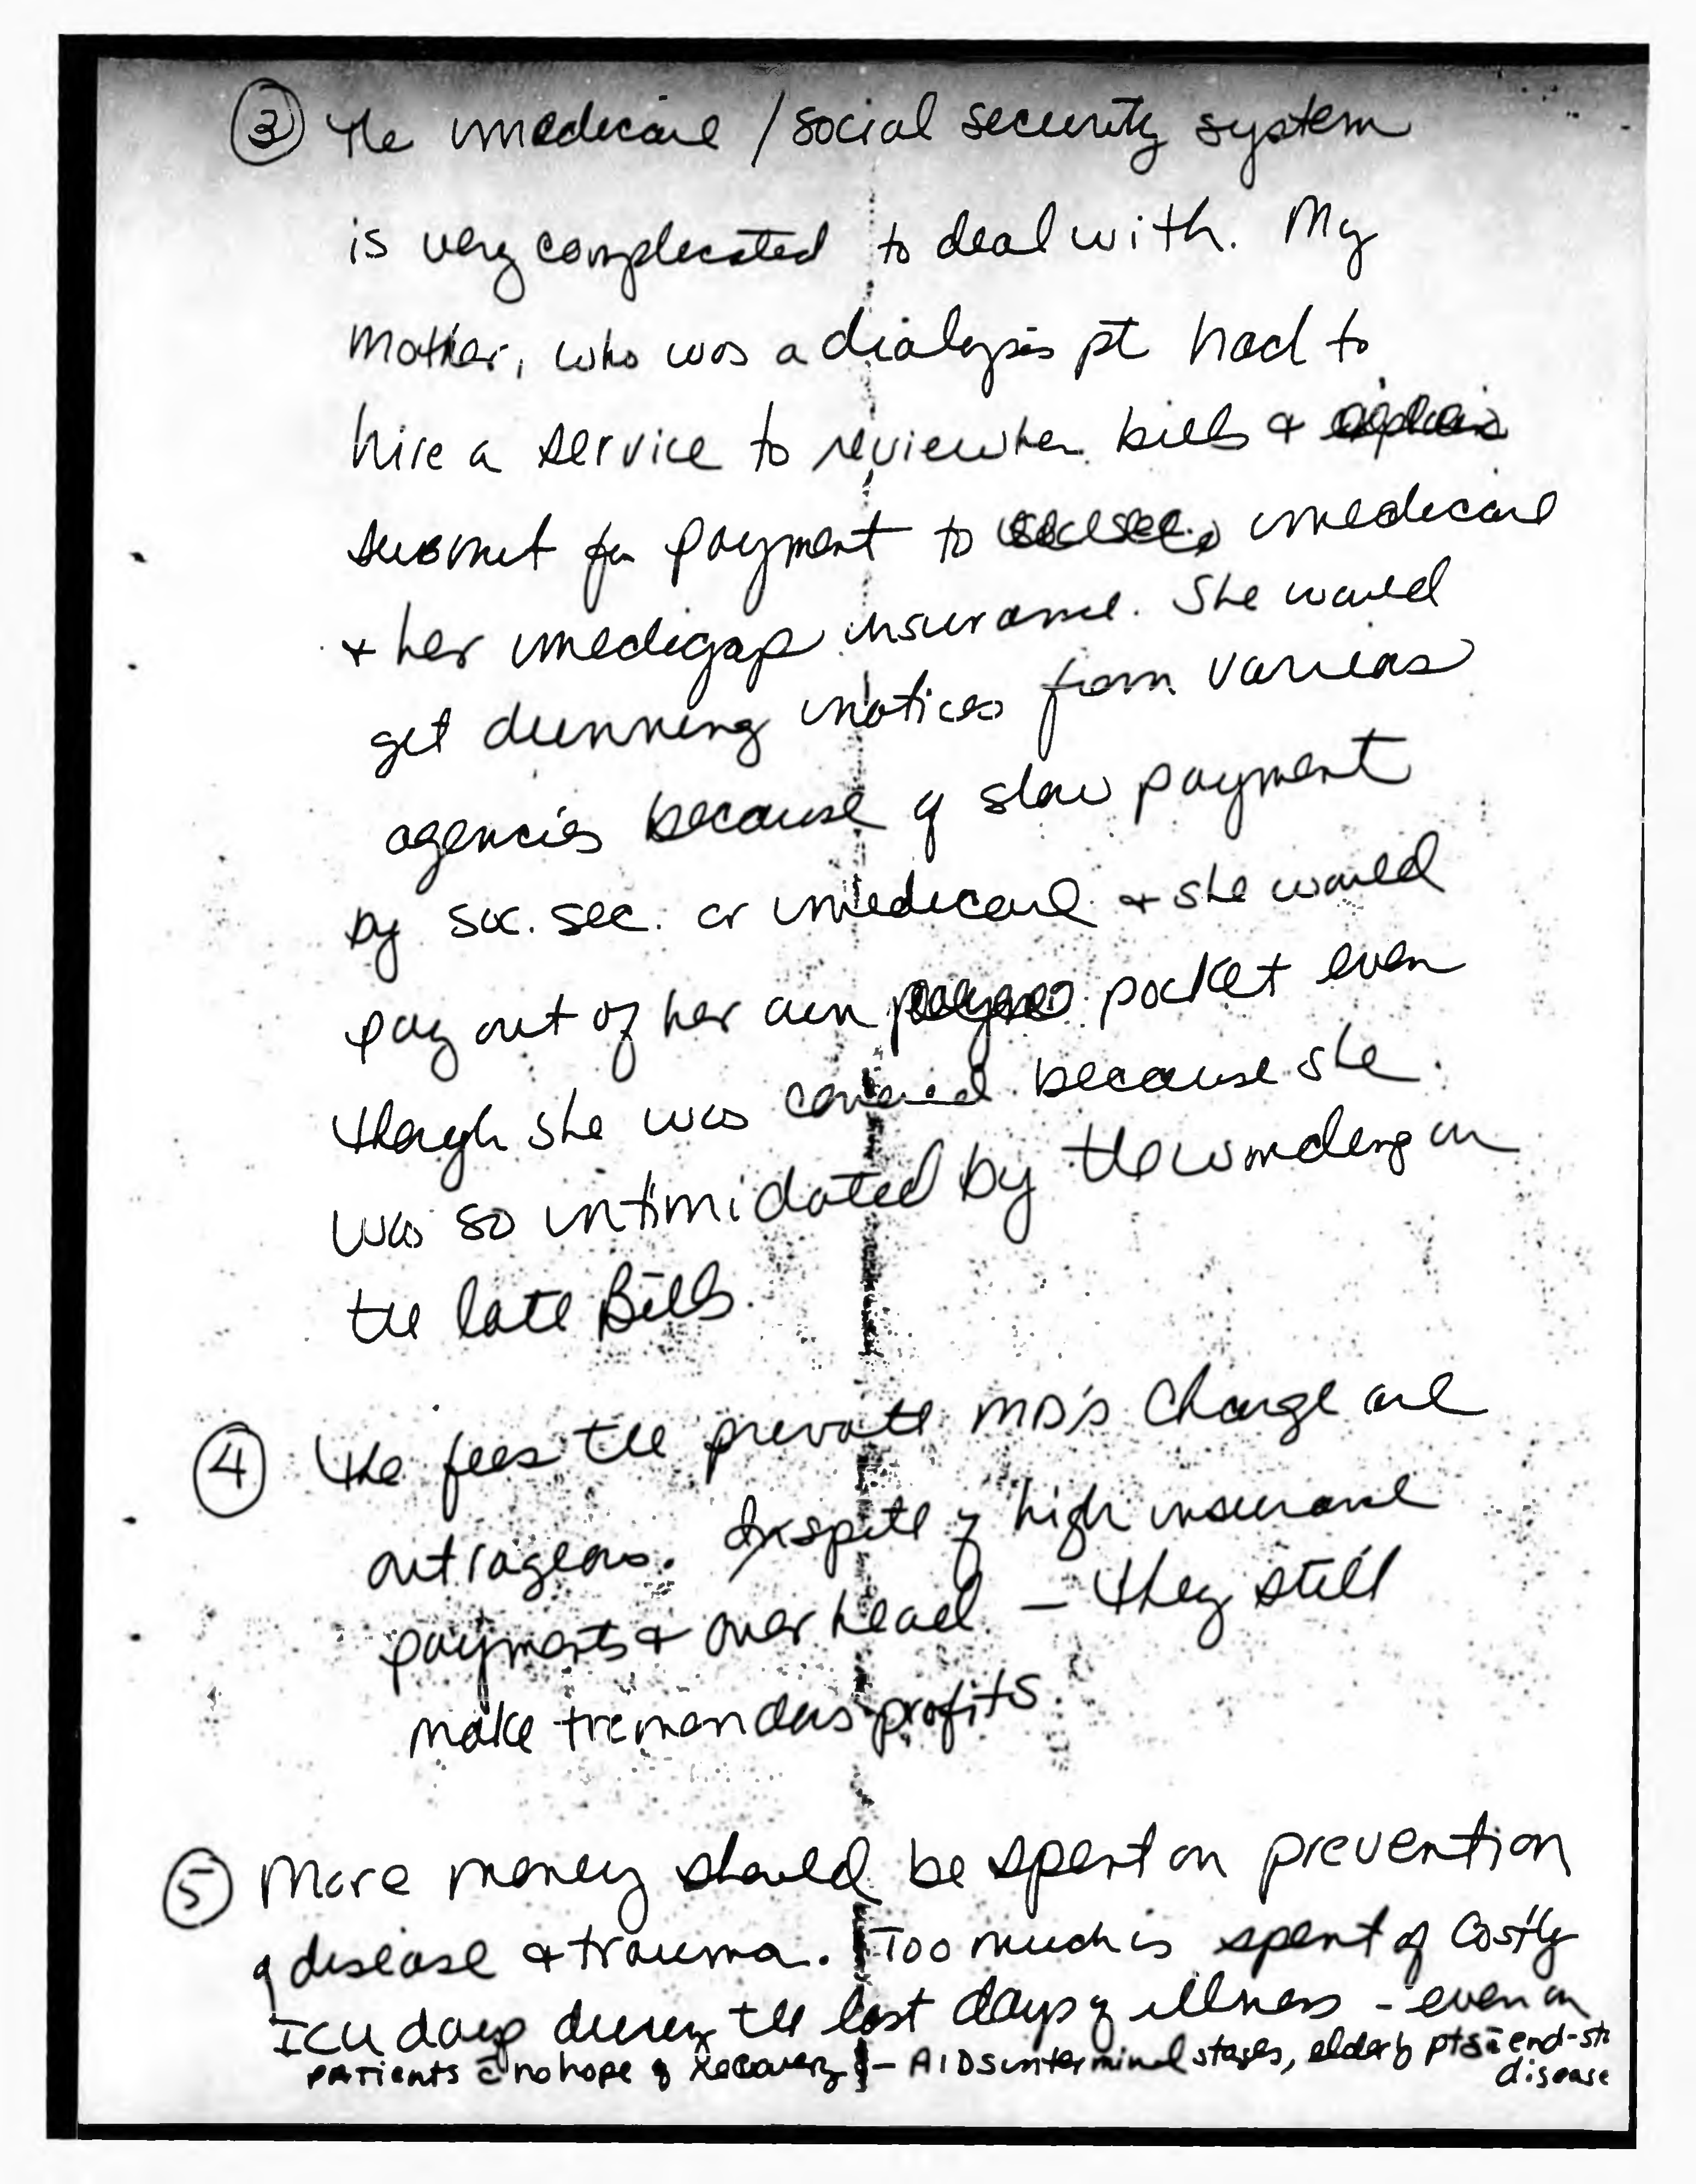 ③ The medicare / social security system
is very complicated to deal with. My
Mother, who was a dialysis pt had to
hire a service to review her bills &
submit for payment to medicare
& her medigap insurance. She would
get dunning notices from various
agencies because of slow payment
by soc. sec. or medicare & she would
pay out of her own pocket even
though she was covered because she
was so intimidated by the wording on
the late Bills.
④ The fees the private MD's Charge are
outrageous. Inspite of high insurance
payments & overhead - they still
make tremendous profits.
⑤ More money should be spent on prevention
of disease & trauma. Too much is spent of costly
ICU days during the last days of illness - even on
patients c̄ no hope of recovery - AIDS in terminal stages, elderly pts c̄ end-st
disease